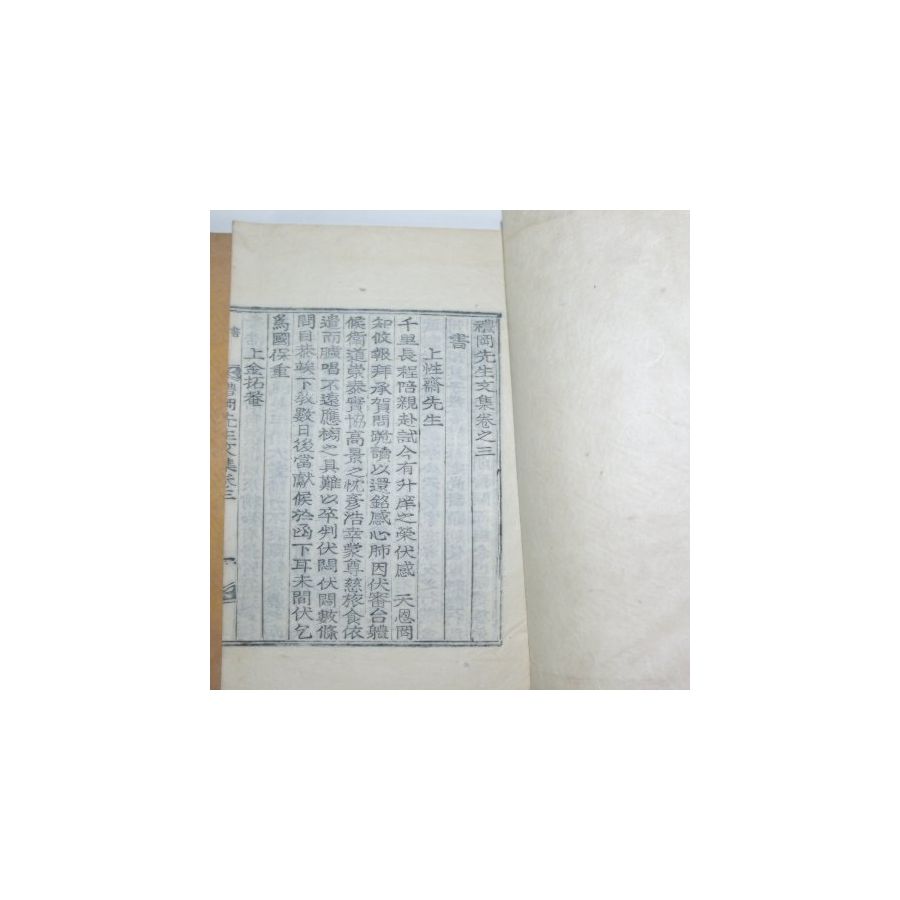 禮岡先生文集卷之三
書
上性齋先生
千里長程陪親赴試今有升庠之榮伏感 天恩罔
知攸報拜承賀問跪讀以還銘感心肺因伏審台軆
候衛道崇泰實協高景之忱彦浩幸蒙尊慈旅食依
遣而臚唱不遠應榜之具難以卒判伏悶伏悶數條
問目恭竢下敎數日後當獻候於函下耳未間伏乞
爲國保重
上金拓菴
禮岡先生文集卷三